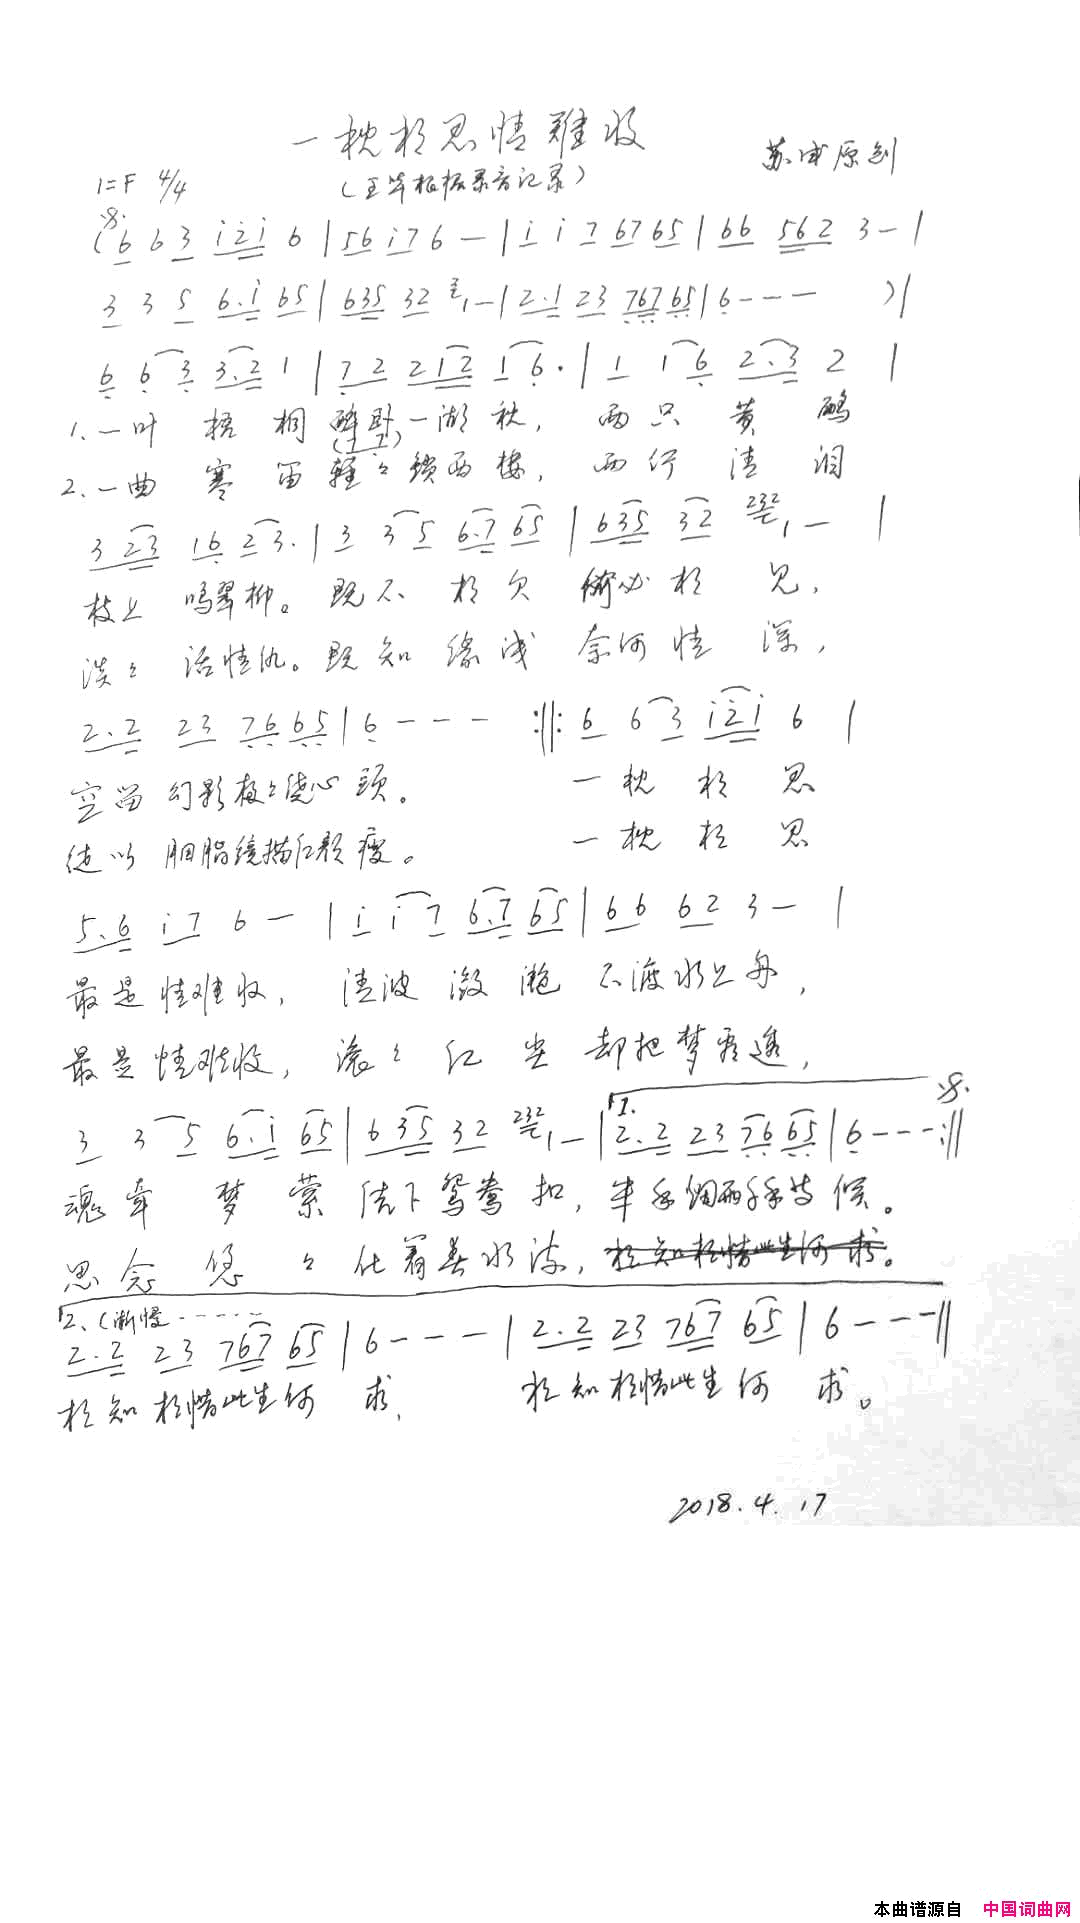 一枕相思情難收
苏成原创
1=F 4/4
(王华根据录音记录)
(6 6 3 i2i 6 | 56 i7 6 — | i i 7 67 65 | 66 562 3 — |
3 3 5 6.i 65 | 635 32 2 1 — | 2.1 23 767 65 | 6 - - - ) |
6 6 3 3.2 1 | 7 2 212 1 6 . | 1 1 6 2.3 2 |
1. 一叶 梧 桐 醉卧 一湖 秋， 两 只 黄 鹂
(7 7)
2. 一曲 寒 笛 轻々 锁西 楼， 两 行 清 泪
3 23 16 23. | 3 3 5 6.7 65 | 635 32 232 1 — |
枝上 鸣翠柳。 既 不 相 欠 何必 相 见，
淡々 话情仇。 既 知 缘 浅 奈何 情 深，
2.2 23 76 65 | 6 - - - :‖: 6 6 3 i2i 6 |
空留 幻影 绕心 頭。 一 枕 相 思
徒以 胭脂 描红颜 瘦。 一 枕 相 思
5.6 i7 6 — | i i 7 6.7 65 | 66 62 3 — |
最是 情难收， 清波 潋 滟 不渡水上舟，
最是 情难收， 滚々 红 尘 却把梦 透，
3 3 5 6.i 65 | 635 32 232 1 — | 1. 2.2 23 76 65 | 6 - - - :‖
魂牵 梦 萦 结下 鸳鸯 扣， 候。
思念 悠 々 化着春水流， 相知相惜此生何 求。
2. (渐慢 - - - - -
2.2 23 767 65 | 6 - - - | 2.2 23 767 65 | 6 - - - ‖
相知 相惜此生何 求， 相知 相惜此生 何 求。
2018.4.17
本曲谱源自 中国词曲网